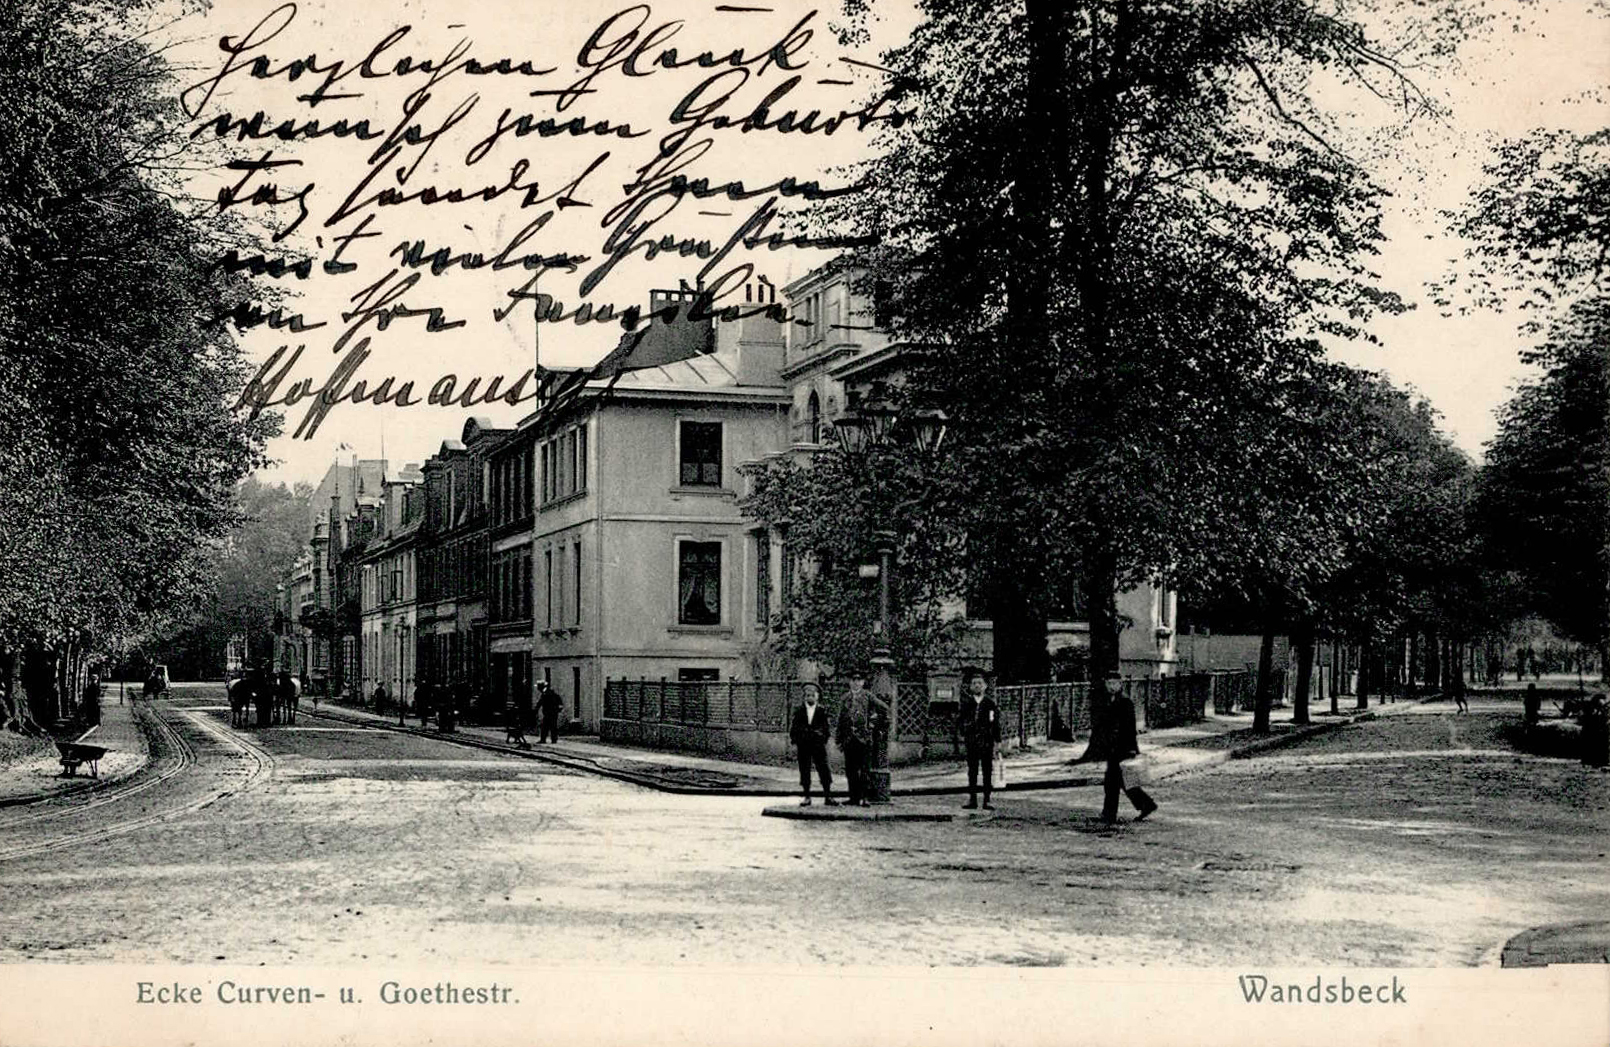 Herzlichen Glück-
wünsch zum Geburts
tag sendet Ihnen
mit vielen Grüßen
an Ihre
Hoffmanns
Ecke Curven- u. Goethestr.
Wandsbeck